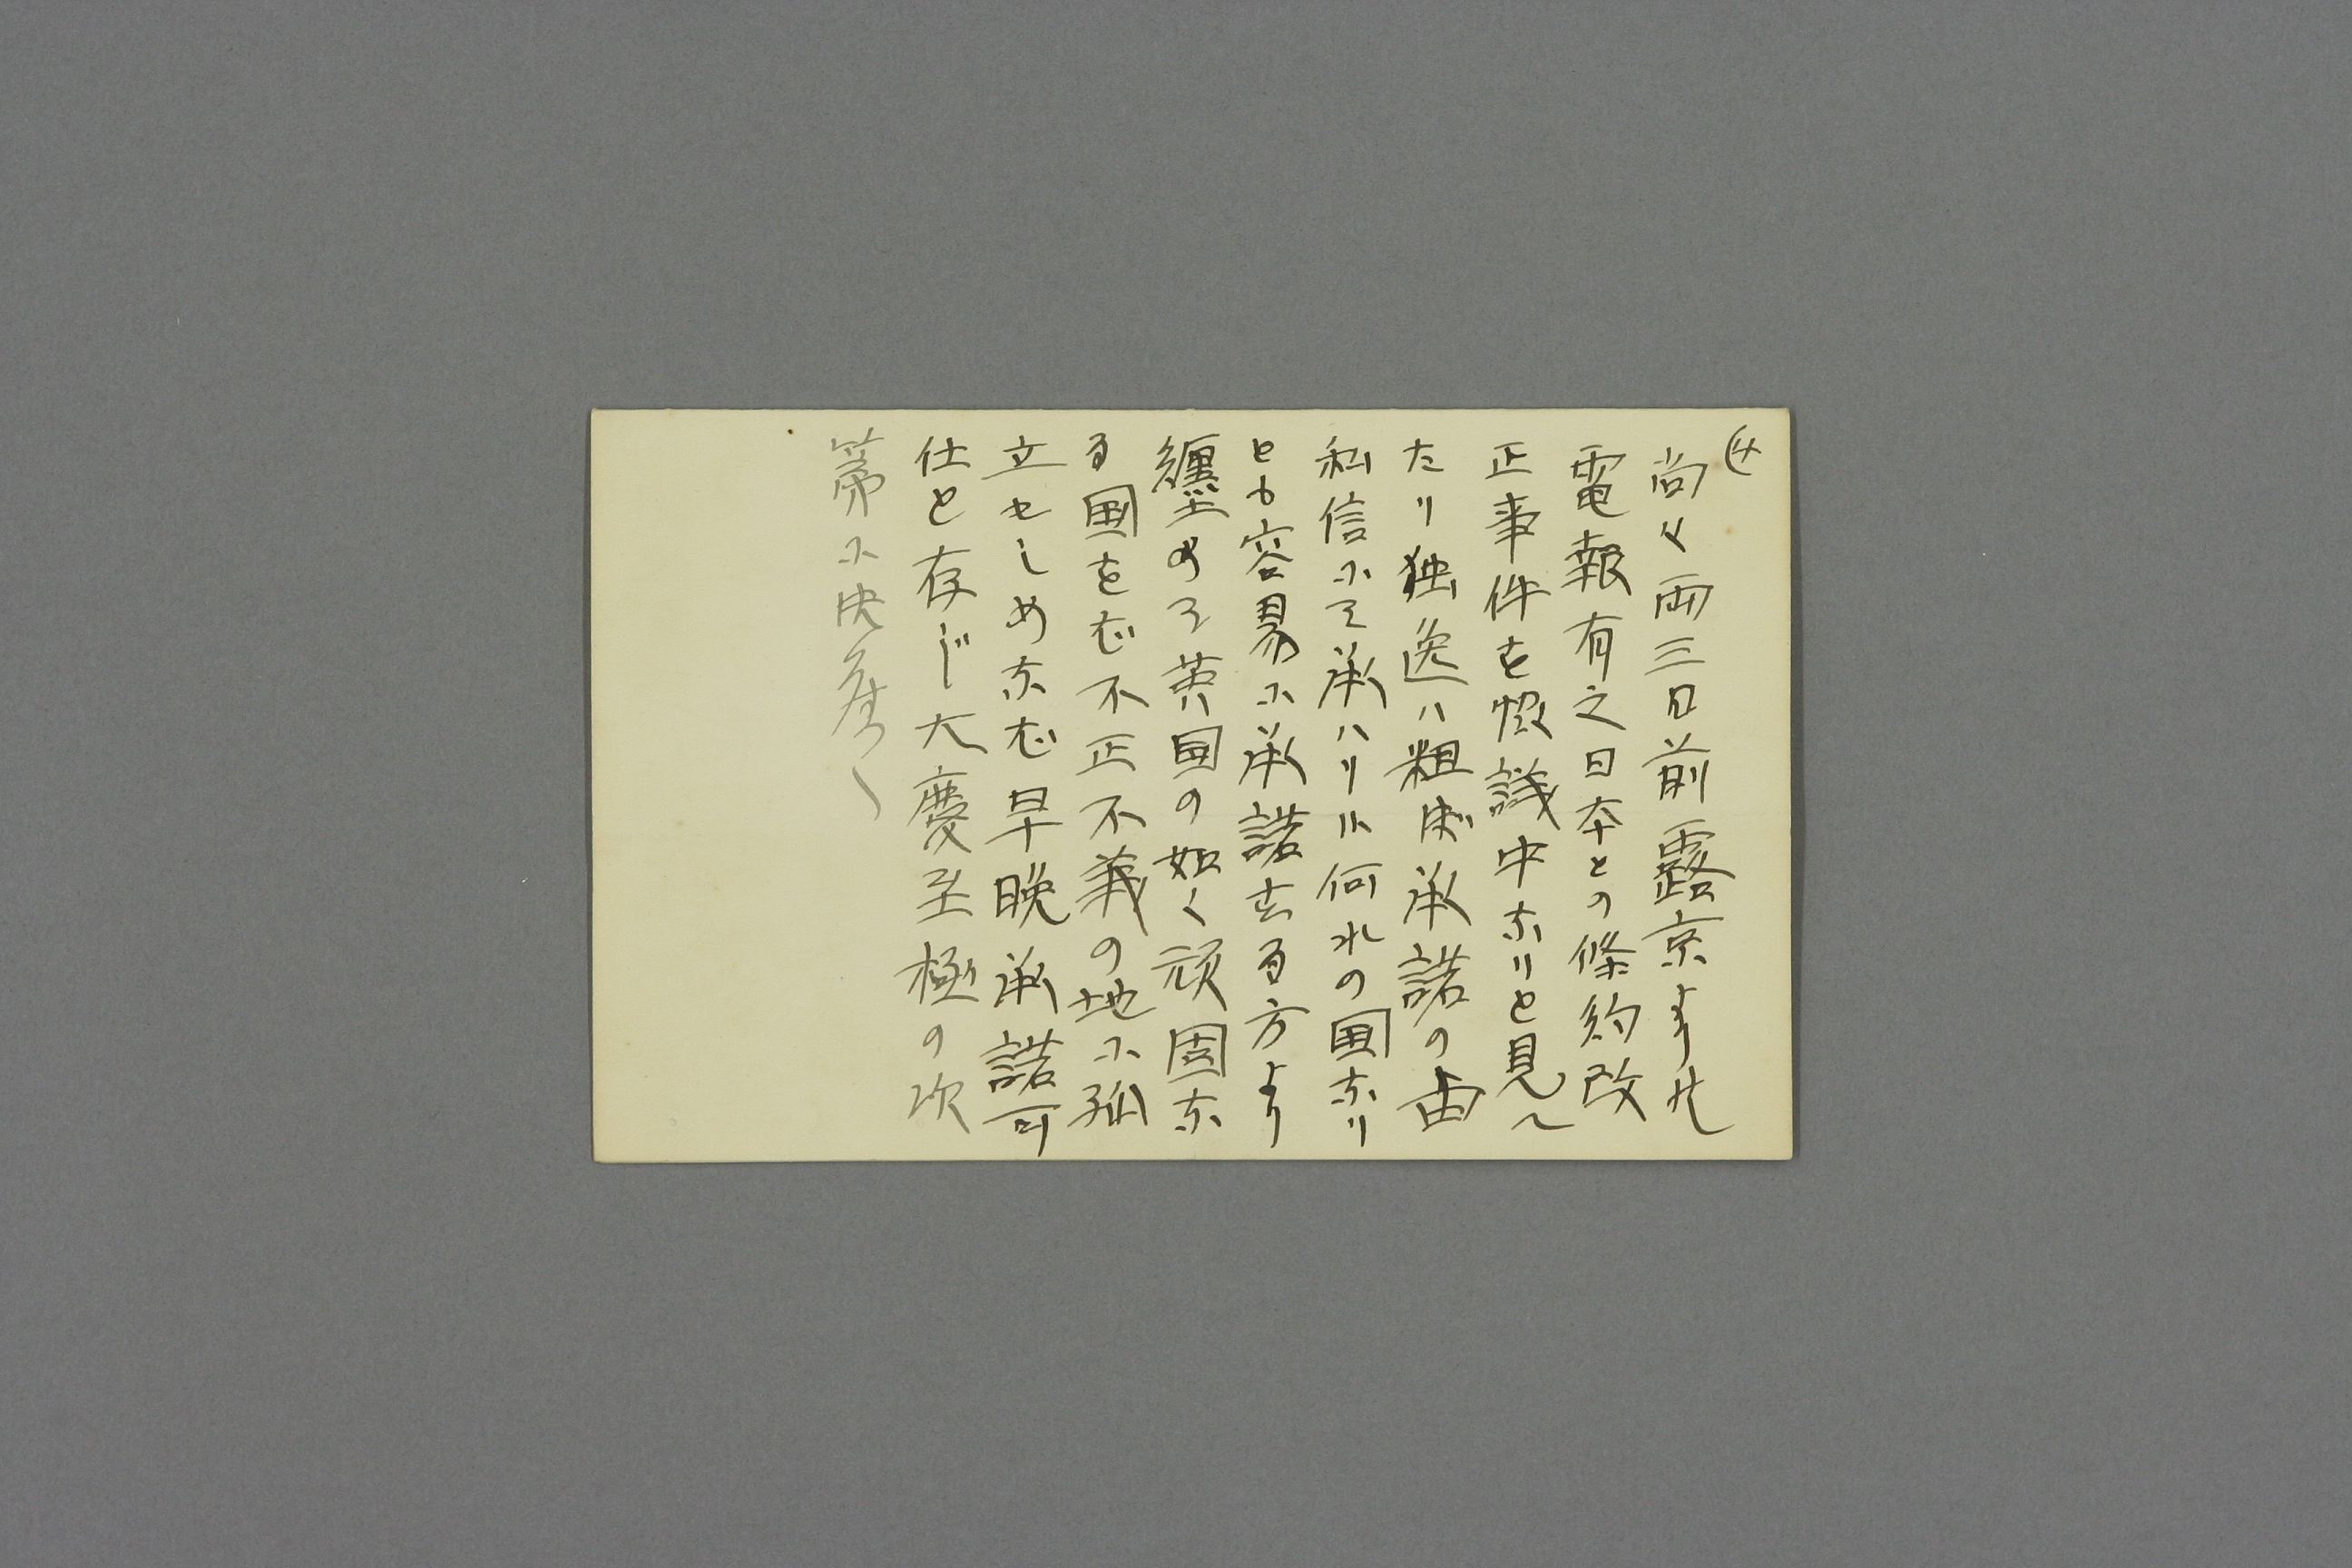 (4
尚々両三日前露京より非
電報有之日本との條約改
正事件を懓議中なりと見へ
たり独逸ハ粗决承諾の由
私信にて承ハリ候何れの国なり
とも容易に承諾する方より
纏めて英国の如く頑固な
る国をば不正不義の地に孤
立せしめなば早晩承諾可
仕と存じ大慶至極の次
第に候